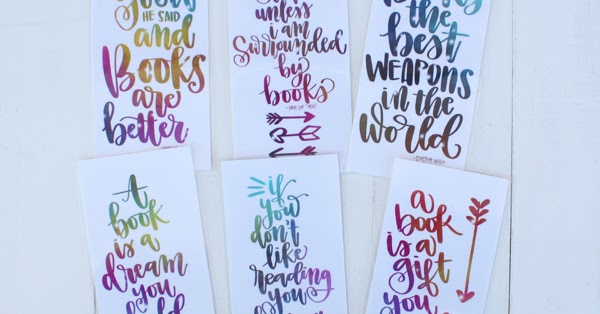 HE SAID
and
Books
are
better
unless
i am
Surrounded
by
books
the
best
WEAPONS
in the
World
-DOCTOR WHO
A
book
is a
dream
you
if
you
don't
like
reading
you
a
book
is a
gift
you